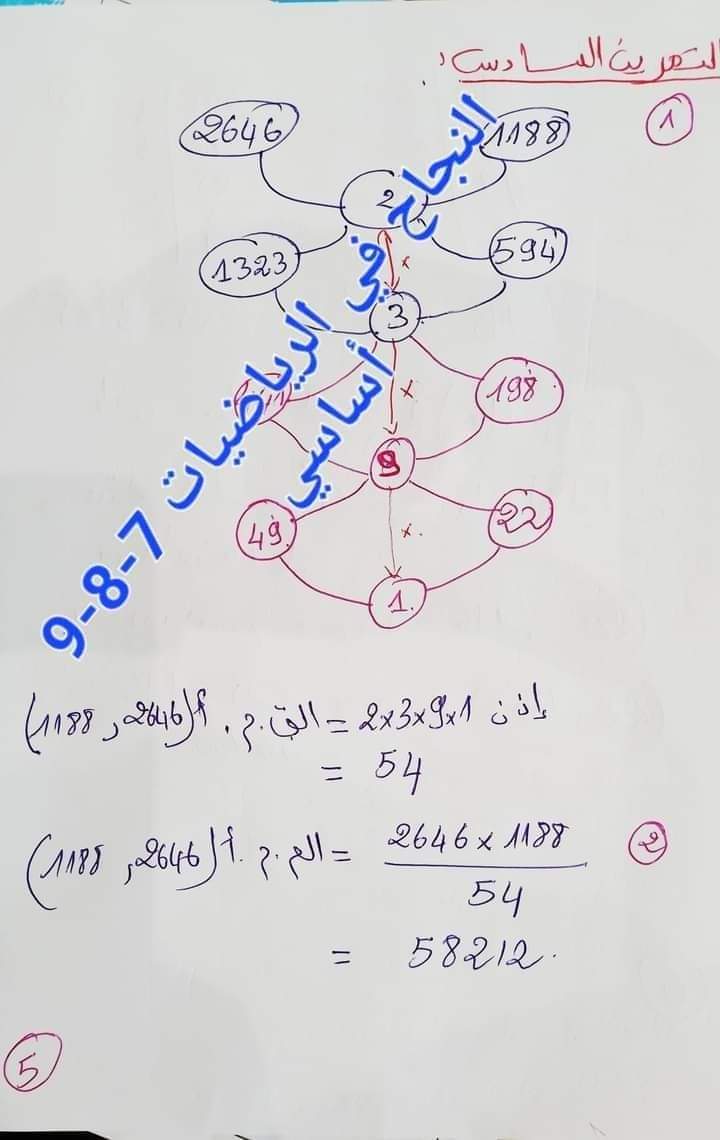 التمرين السادس:
1
2646 1188
2
1323 594
3
198
9
49 22
1.
النجاح في الرياضيات 7-8-9 أساسي
إذن 2x3x9x1 = الق.م.أ (2646 , 1188)
= 54
2
الم.م.أ (2646 , 1188) = 2646 x 1188
54
= 58212.
5